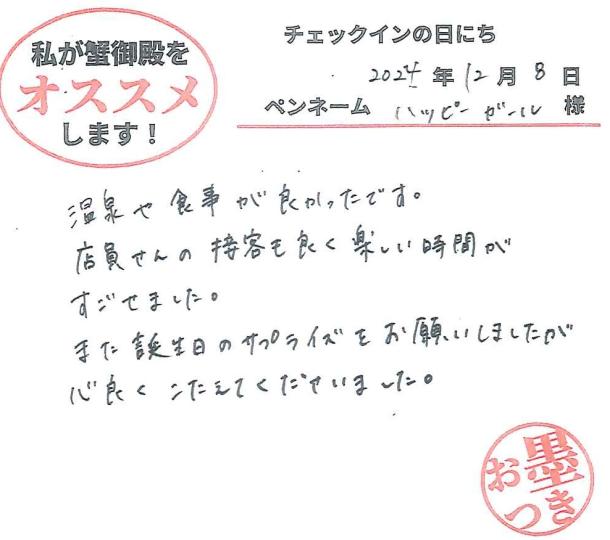 私が蟹御殿を
オススメ
します！
チェックインの日にち
2024年12月8日
ペンネーム ハッピーガール 様
温泉や食事が良かったです。
店員さんの接客も良く楽しい時間が
すごせました。
また誕生日のサプライズをお願いしましたが
心良くこたえてくださいました。
お墨
つき